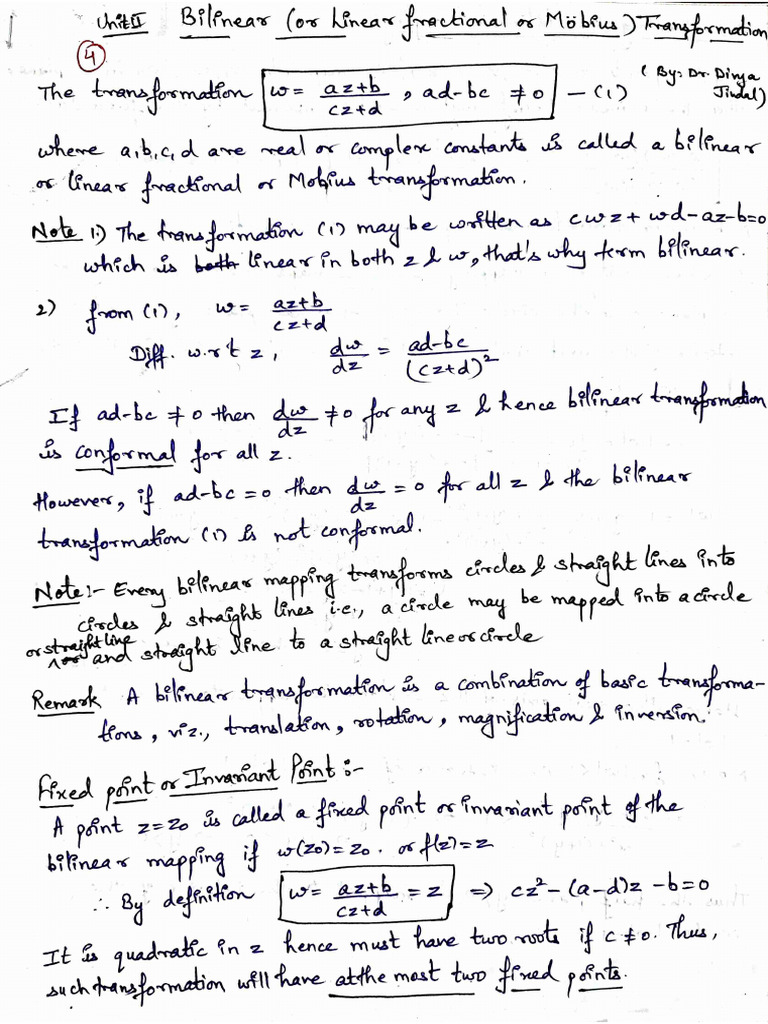 Unit II Bilinear (or Linear fractional or Möbius) Transformation
4
(By: Dr. Divya Jindal)
The transformation w = az+b/cz+d , ad-bc ≠ 0 — (1)
where a,b,c,d are real or complex constants is called a bilinear
or linear fractional or Mobius transformation.
Note 1) The transformation (1) may be written as cwz + wd-az-b=0
which is both linear in both z & w, that's why term bilinear.
2) from (1), w = az+b/cz+d
Diff. w.r.t z, dw/dz = ad-bc/(cz+d)²
If ad-bc ≠ 0 then dw/dz ≠ 0 for any z & hence bilinear transformation
is conformal for all z.
However, if ad-bc = 0 then dw/dz = 0 for all z & the bilinear
transformation (1) is not conformal.
Note:- Every bilinear mapping transforms circles & straight lines into
circles & straight lines i.e., a circle may be mapped into a circle
or straight line and straight line to a straight line or circle
Remark A bilinear transformation is a combination of basic transforma-
tions, viz., translation, rotation, magnification & inversion.
Fixed point or Invariant Point :-
A point z=z0 is called a fixed point or invariant point of the
bilinear mapping if w(z0)=z0. or f(z)=z
∴ By definition w = az+b/cz+d = z ⇒ cz²-(a-d)z -b=0
It is quadratic in z hence must have two roots if c ≠ 0. Thus,
such transformation will have at the most two fixed points.